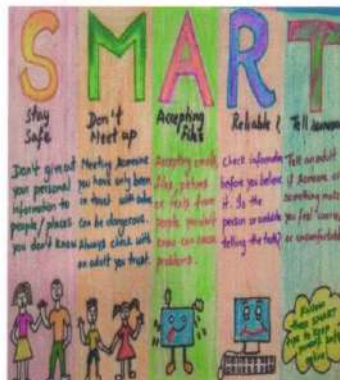 SMART
Stay
Safe
Don't give out
your personal
information to
people/places
you don't know
Don't
Meet up
Meeting someone
you have only been
in touch with online
can be dangerous.
Always check with
an adult you trust.
Accepting
Files
Accepting emails,
files, pictures
or texts from
people you don't
know can cause
problems.
Reliable?
Check information
before you believe
it. Is the
person or website
telling the truth?
Tell someone
Tell an adult
if someone or
something makes
you feel worried
or uncomfortable
Follow
these SMART
tips to keep
yourself safe
online